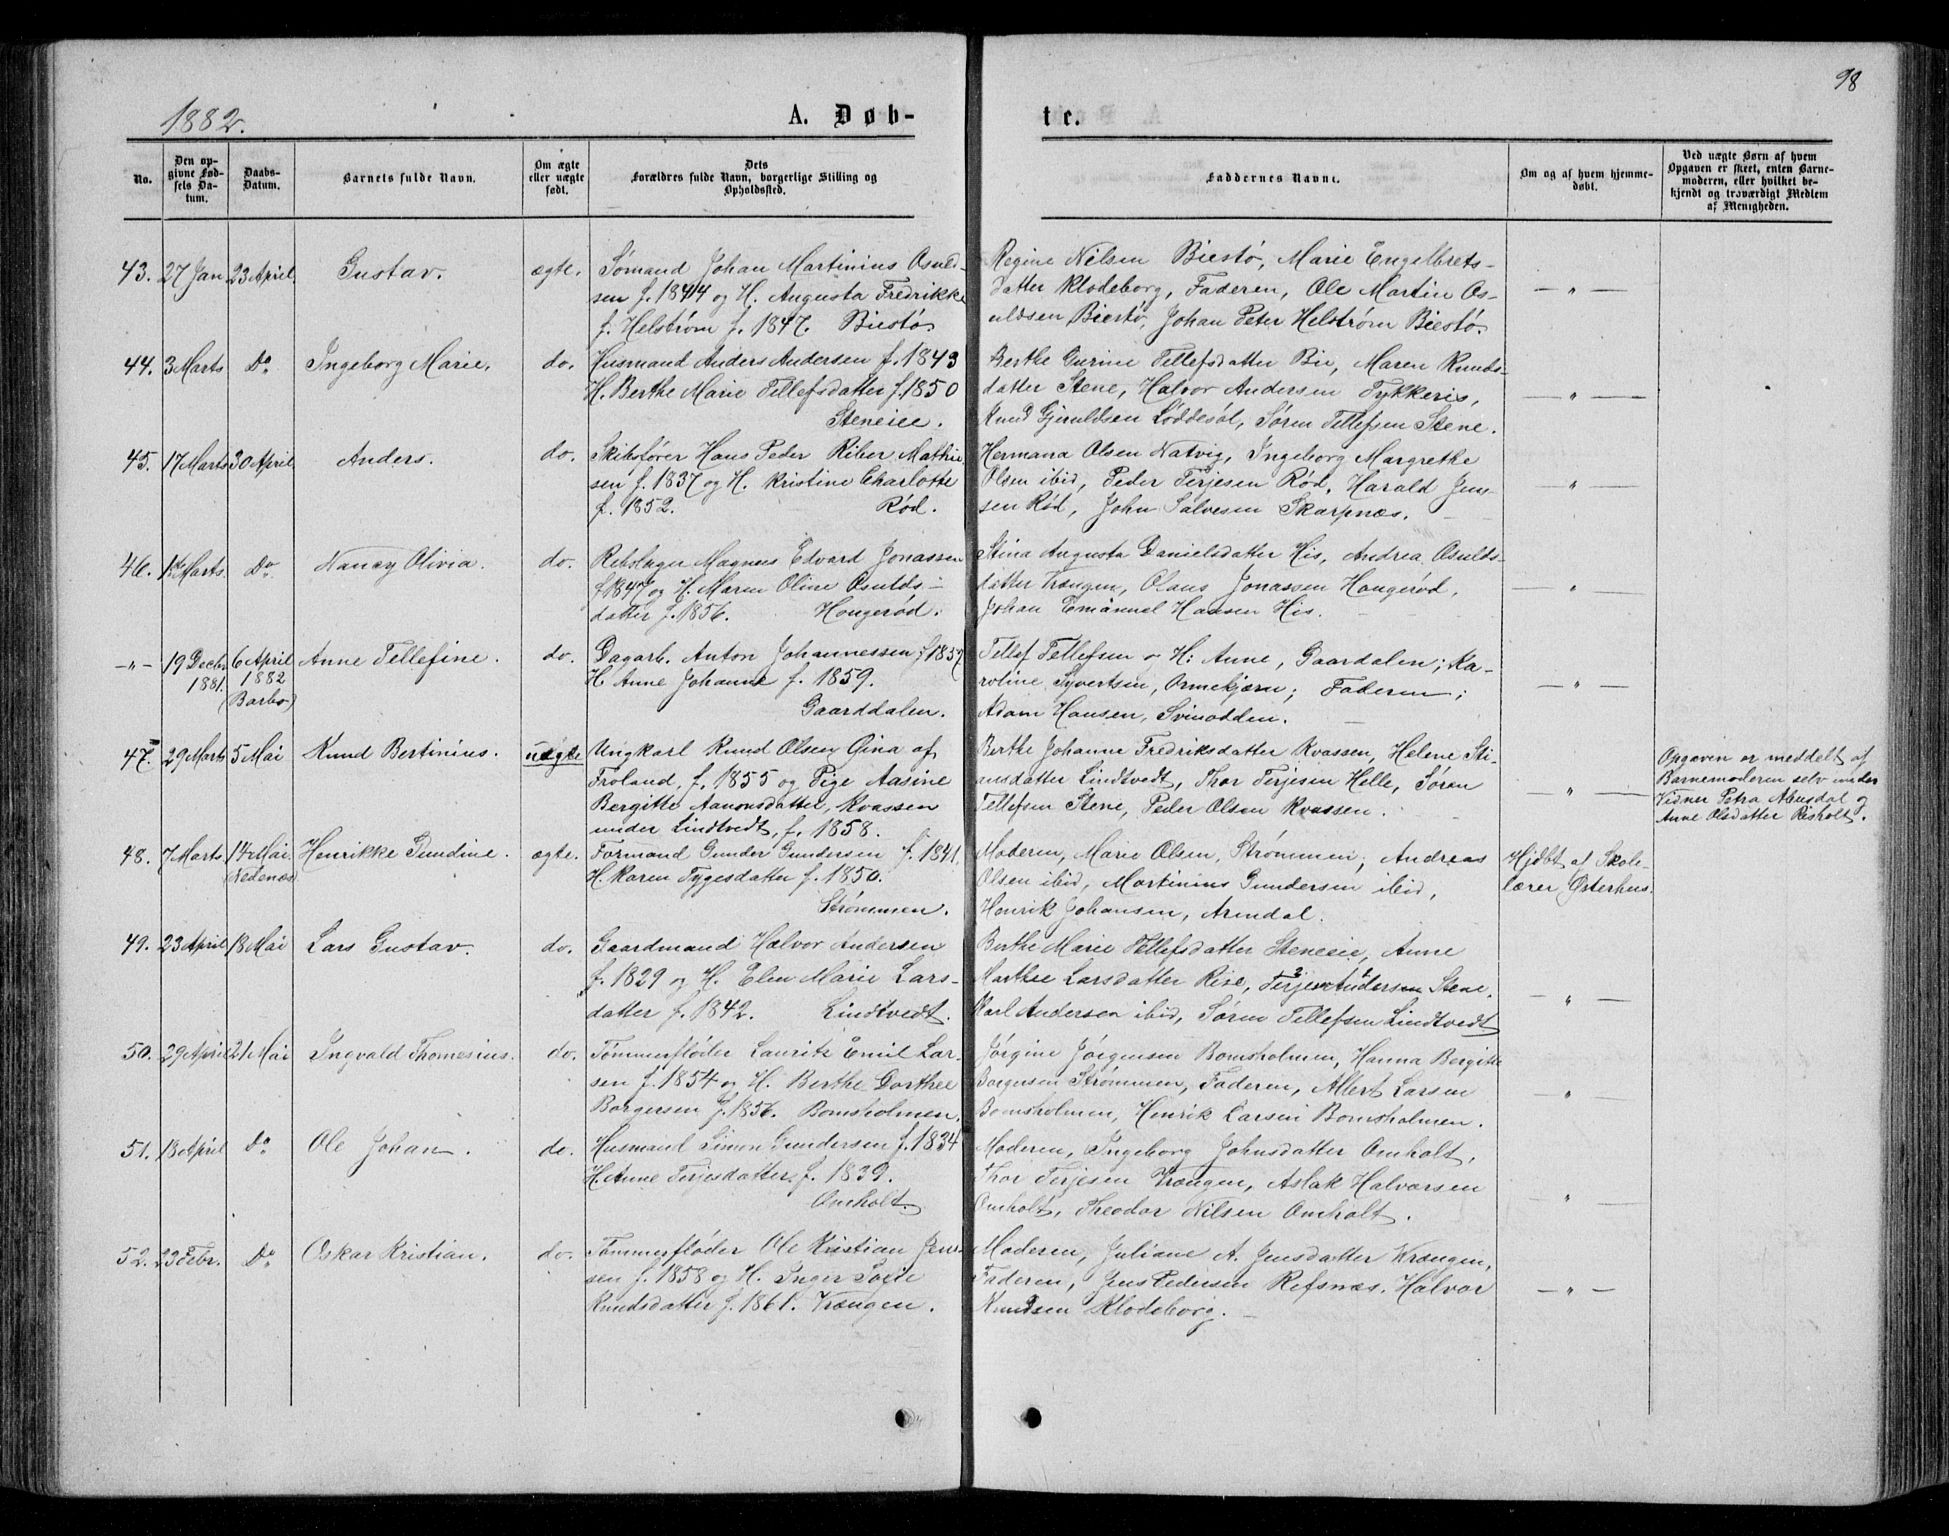 98
1882.
A. Døb-
te.
No.
Den op-
givne Fød-
sels Da-
tum.
Daabs-
Datum.
Barnets fulde Navn.
Om ægte
eller uægte
født.
Dets
Forældres fulde Navn, borgerlige Stilling og
Opholdssted.
Faddernes Navne.
Om og af hvem hjemme-
døbt.
Ved uægte Børn af hvem
Opgaven er skeet, enten Barne-
moderen, eller hvilket be-
kjendt og troværdigt Medlem
af Menigheden.
43. 27 Jan 23 April. Gustav. ægte.
Sømand Johan Martinius Osuld-
sen f. 1844 og H. Augusta Fredrikke
f. Helstrøm f. 1847. Biestø.
Regine Nilsen Biestø, Marie Engelbrets-
datter Klodeborg, Faderen, Ole Martin Os-
uldsen Biestø, Johan Peter Helstrøm Biestø.
— " —
44. 3 Marts Do Ingeborg Marie. do.
Husmand Anders Andersen f. 1843
H. Berthe Marie Tellefsdatter f. 1850
Steneiee.
Berthe Gurine Tellefsdatter Bie, Maren Knuds-
datter Stene, Halvor Andersen Tykkeris,
Knud Gjeruldsen Løddesøl, Søren Tellefsen Stene.
— " —
45. 17 Marts 30 April. Anders. do.
Skibsfører Hans Peder Riber Mathie-
sen f. 1837 og H. Kristine Charlotte
f. 1852. Rød.
Hermana Olsen Natvig, Ingeborg Margrethe
Olsen ibid, Peder Terjesen Rød, Harald Jen-
sen Rød, John Salvesen Skarpnæs.
— " —
46. Marts. Do Nancy Olivia. do.
Rebslager Magnus Edvard Jonassen
f 1847 og H. Maren Oline Osulds-
datter f. 1856. Hougerød.
Stina Augusta Danielsdatter His, Andrea Osulds-
datter Vrængen, Olaus Jonassen Hougerød,
Johan Emanuel Hansen His.
— " —
— " — 19 Decbr 1881. 6 April 1882 (Barbo) Anne Tellefine. do.
Dagarb. Anton Johannessen f 1857
H Anne Johanne f. 1859.
Gaarddalen.
Tellef Tellefsen og H: Anne, Gaardalen; Ka-
roline Syvertsen, Ormekjærn; Faderen;
Adam Hansen, Svinodden.
— " —
47. 29 Marts 5 Mai Knud Bertinius. uægte
Ungkarl Knud Olsen Gina af
Froland, f. 1855 og Pige Aasine
Bergitte Aanonsdatter, Kvassen
under Lindtvedt, f. 1858.
Berthe Johanne Fredriksdatter Kvassen, Helene Sti-
ansdatter Lindtvedt, Thor Terjesen Helle, Søren
Tellefsen Stene, Peder Olsen Kvassen.
— " —
Opgaven er meddelt af
Barnemoderen selv under
Vidner Petra og
Anne Olsdatter Risholt.
48. 7 Marts 14 Mai. (Nedenæs) Henrikke Gundine. ægte.
Formand Gunder Gundersen f. 1841.
H. Karen Tygesdatter f. 1850.
Strømmen.
Moderen, Marie Olsen, Strømmen, Andreas
Olsen ibid, Martinius Gundersen ibid,
Henrik Johansen, Arendal.
Hjdbt af Skole-
lærer Osterhus.
49. 23 April 18 Mai Lars Gustav. do.
Gaardmand Halvor Andersen
f. 1829 og H. Elen Marie Lars-
datter f. 1842. Lindtvedt.
Berthe Marie Tellefsdatter Steneiee, Anne
Marthee Larsdatter Rise, Terjesen Andersen Stene,
Karl Andersen ibid, Søren Tellefsen Lindtvedt
— " —
50. 29 April 21 Mai Ingvald Thomesius. do.
Tømmerfløder Lauritz Emil Lar-
sen f. 1854 og H. Berthe Dorthee
Borgersen f. 1856. Bomsholmen.
Jørgine Jørgensen Bomsholmen, Hanna Bergitte
Borgersen Strømmen, Faderen, Albert Larsen
Bomsholmen, Henrik Larsen Bomsholmen.
— " —
51. 18 April Do Ole Johan. do.
Husmand Simon Gundersen f. 1834
H. Anne Terjesdatter f. 1839.
Omholt.
Moderen, Ingeborg Johnsdatter Omholt,
Thor Terjesen Vrængen, Aslak Halvorsen
Omholt, Theodor Nilsen Omholt.
— " —
52. 23 Febr. Do Oskar Kristian. do.
Tømmerfløder Ole Kristian Jen-
sen f. 1858 og H. Inger Sofie
Knudsdatter f. 1861. Vrængen.
Moderen, Juliane A. Jensdatter Vrængen,
Faderen, Jens Pedersen Refsnæs, Halvor
Knudsen Klodeborg.
— " —